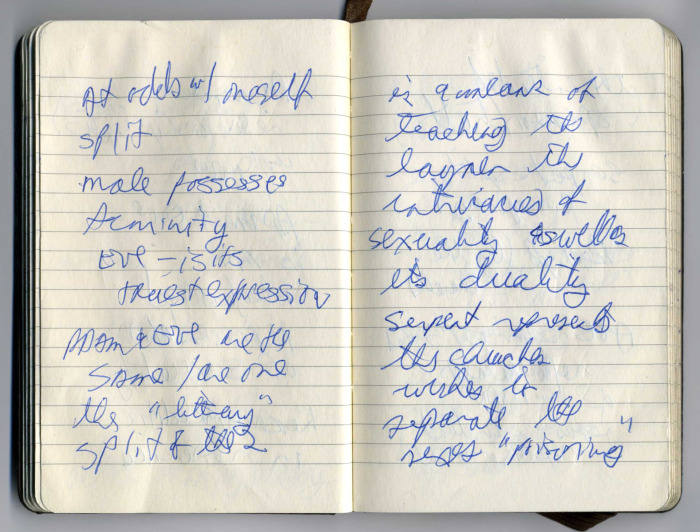 At odds w/ oneself
split
male possesses
feminity
EVE – is its
truest expression
ADAM & EVE are the
same / are one
the "literary"
split of the 2
is a means of
teaching the
laymen the
intricacies of
sexuality as well as
its duality
serpent represents
the churches
wishes to
separate the
sexes "poisoning"